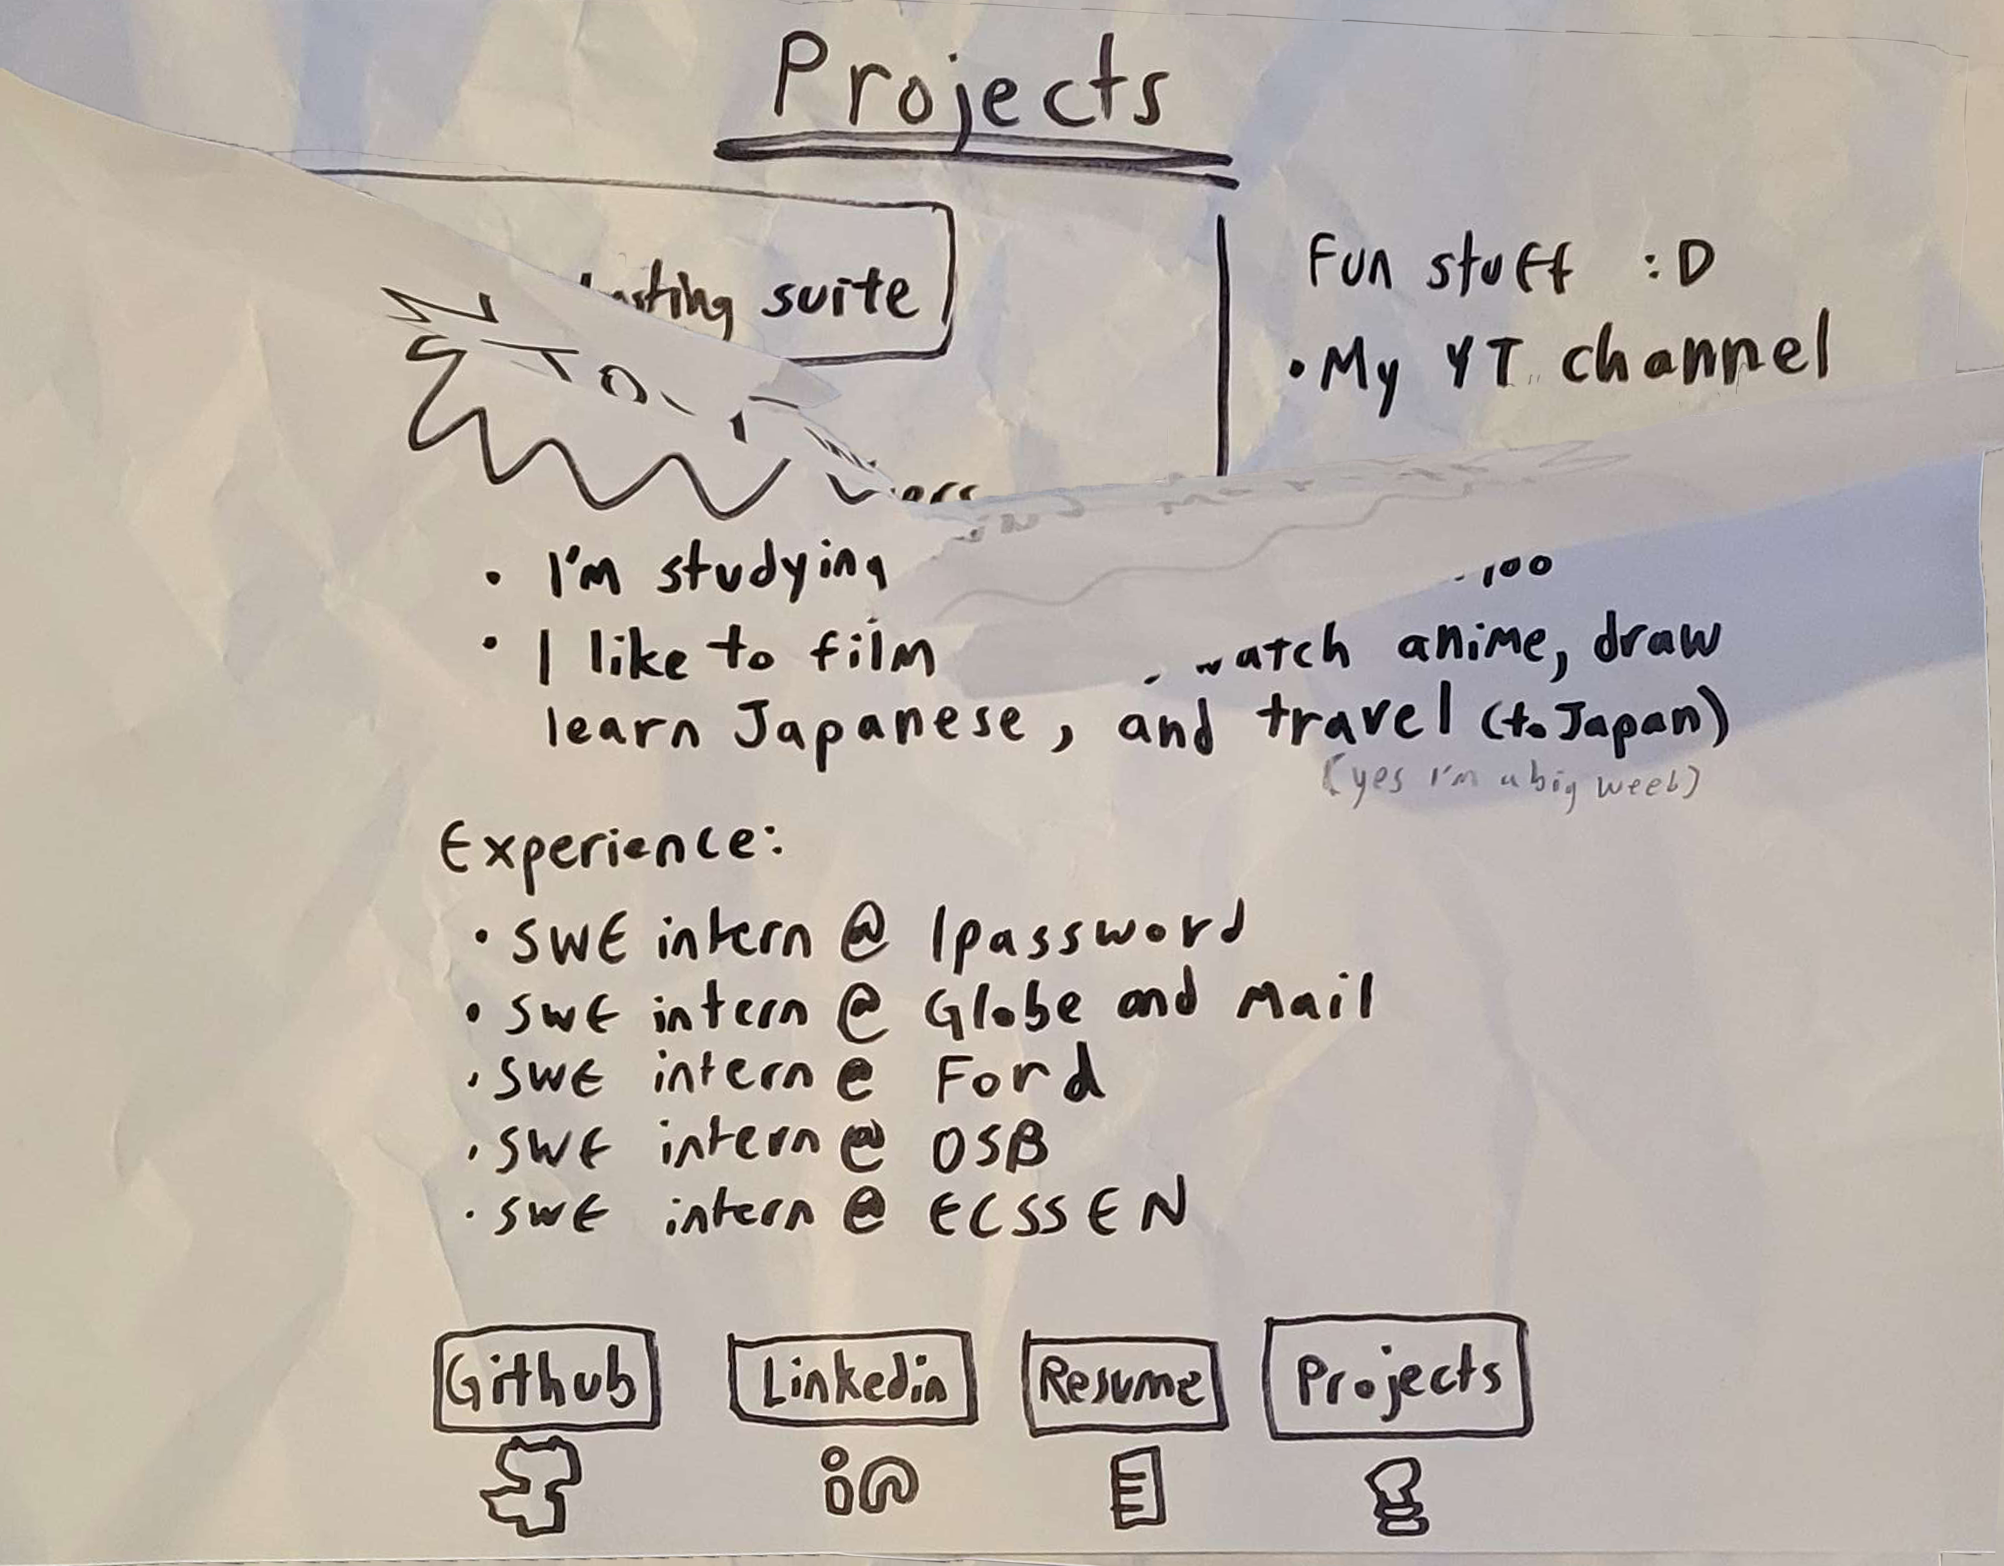 Projects
suite
Fun stuff :D
• My YT channel
• I'm studying
• I like to film
anime, draw
learn Japanese, and travel (to Japan)
(yes I'm a big weeb)
Experience:
• SWE intern @ 1password
• SWE intern @ Globe and Mail
• SWE intern @ Ford
• SWE intern @ OSB
• SWE intern @ ECSSEN
Github
Linkedin
Resume
Projects
in